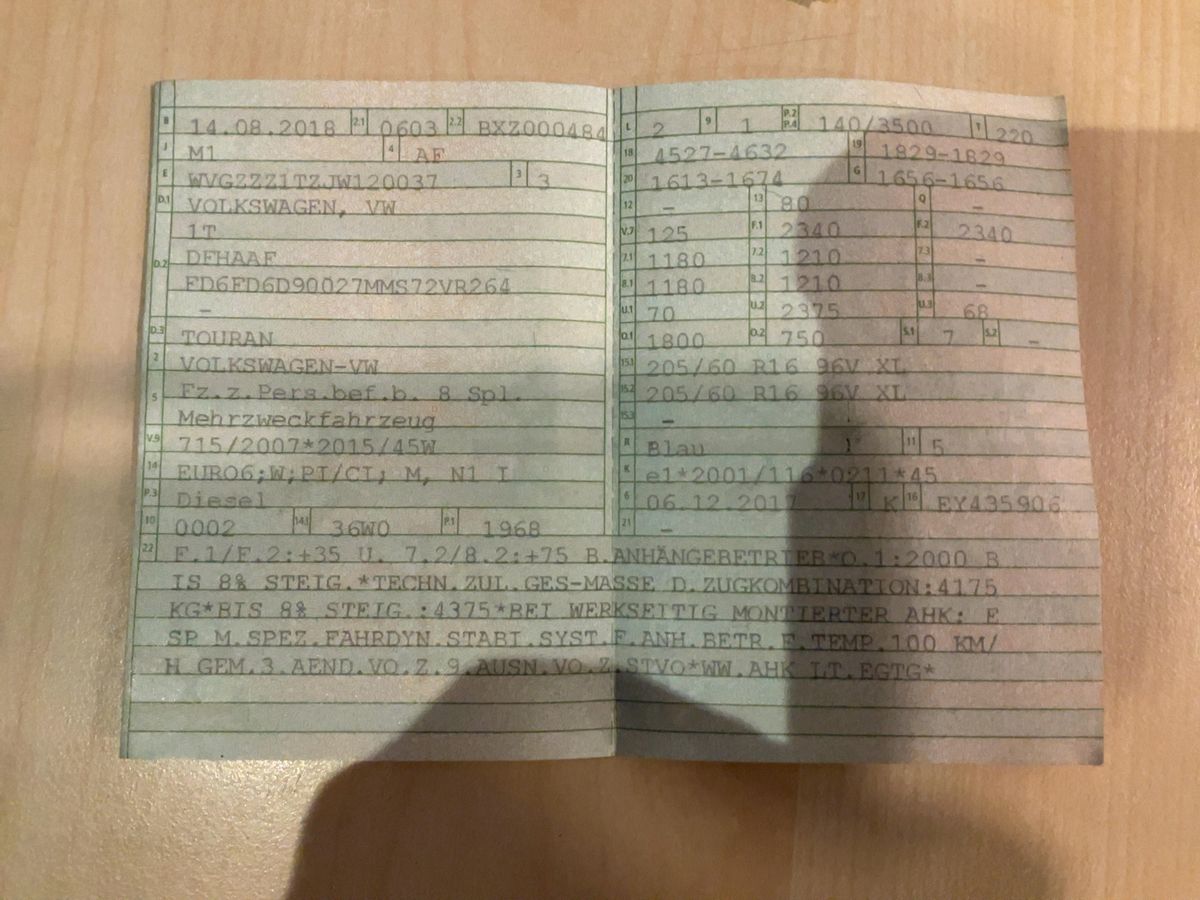 B 14.08.2018 2.1 0603 2.2 BXZ000484
J M1 4 AF
E WVGZZZ1TZJW120037 3 3
D.1 VOLKSWAGEN, VW
1T
D.2 DFHAAF
FD6FD6D90027MMS72VR264
–
D.3 TOURAN
2 VOLKSWAGEN-VW
5 Fz.z.Pers.bef.b. 8 Spl.
Mehrzweckfahrzeug
V.9 715/2007*2015/45W
14 EURO6;W;PI/CI; M, N1 I
P.3 Diesel
10 0002 14.1 36W0 P.1 1968
L 2 9 1 P.2 P.4 140/3500 T 220
18 4527-4632 19 1829-1829
20 1613-1674 G 1656-1656
12 – 13 80 Q –
V.7 125 F.1 2340 F.2 2340
7.1 1180 7.2 1210 7.3 –
8.1 1180 8.2 1210 8.3 –
U.1 70 U.2 2375 U.3 68
O.1 1800 O.2 750 S.1 7 S.2 –
15.1 205/60 R16 96V XL
15.2 205/60 R16 96V XL
15.3 –
R Blau 11 5
K e1*2001/116*0211*45
6 06.12.2017 17 K 16 EY435906
21 –
22 F.1/F.2:+35 U. 7.2/8.2:+75 B.ANHÄNGEBETRIEB*O.1:2000 B
IS 8% STEIG.*TECHN.ZUL.GES-MASSE D.ZUGKOMBINATION:4175
KG*BIS 8% STEIG.:4375*BEI WERKSEITIG MONTIERTER AHK: E
SP M.SPEZ.FAHRDYN.STABI.SYST.F.ANH.BETR.F.TEMP.100 KM/
H GEM.3.AEND.VO.Z.9.AUSN.VO.Z.STVO*WW.AHK LT.EGTG*